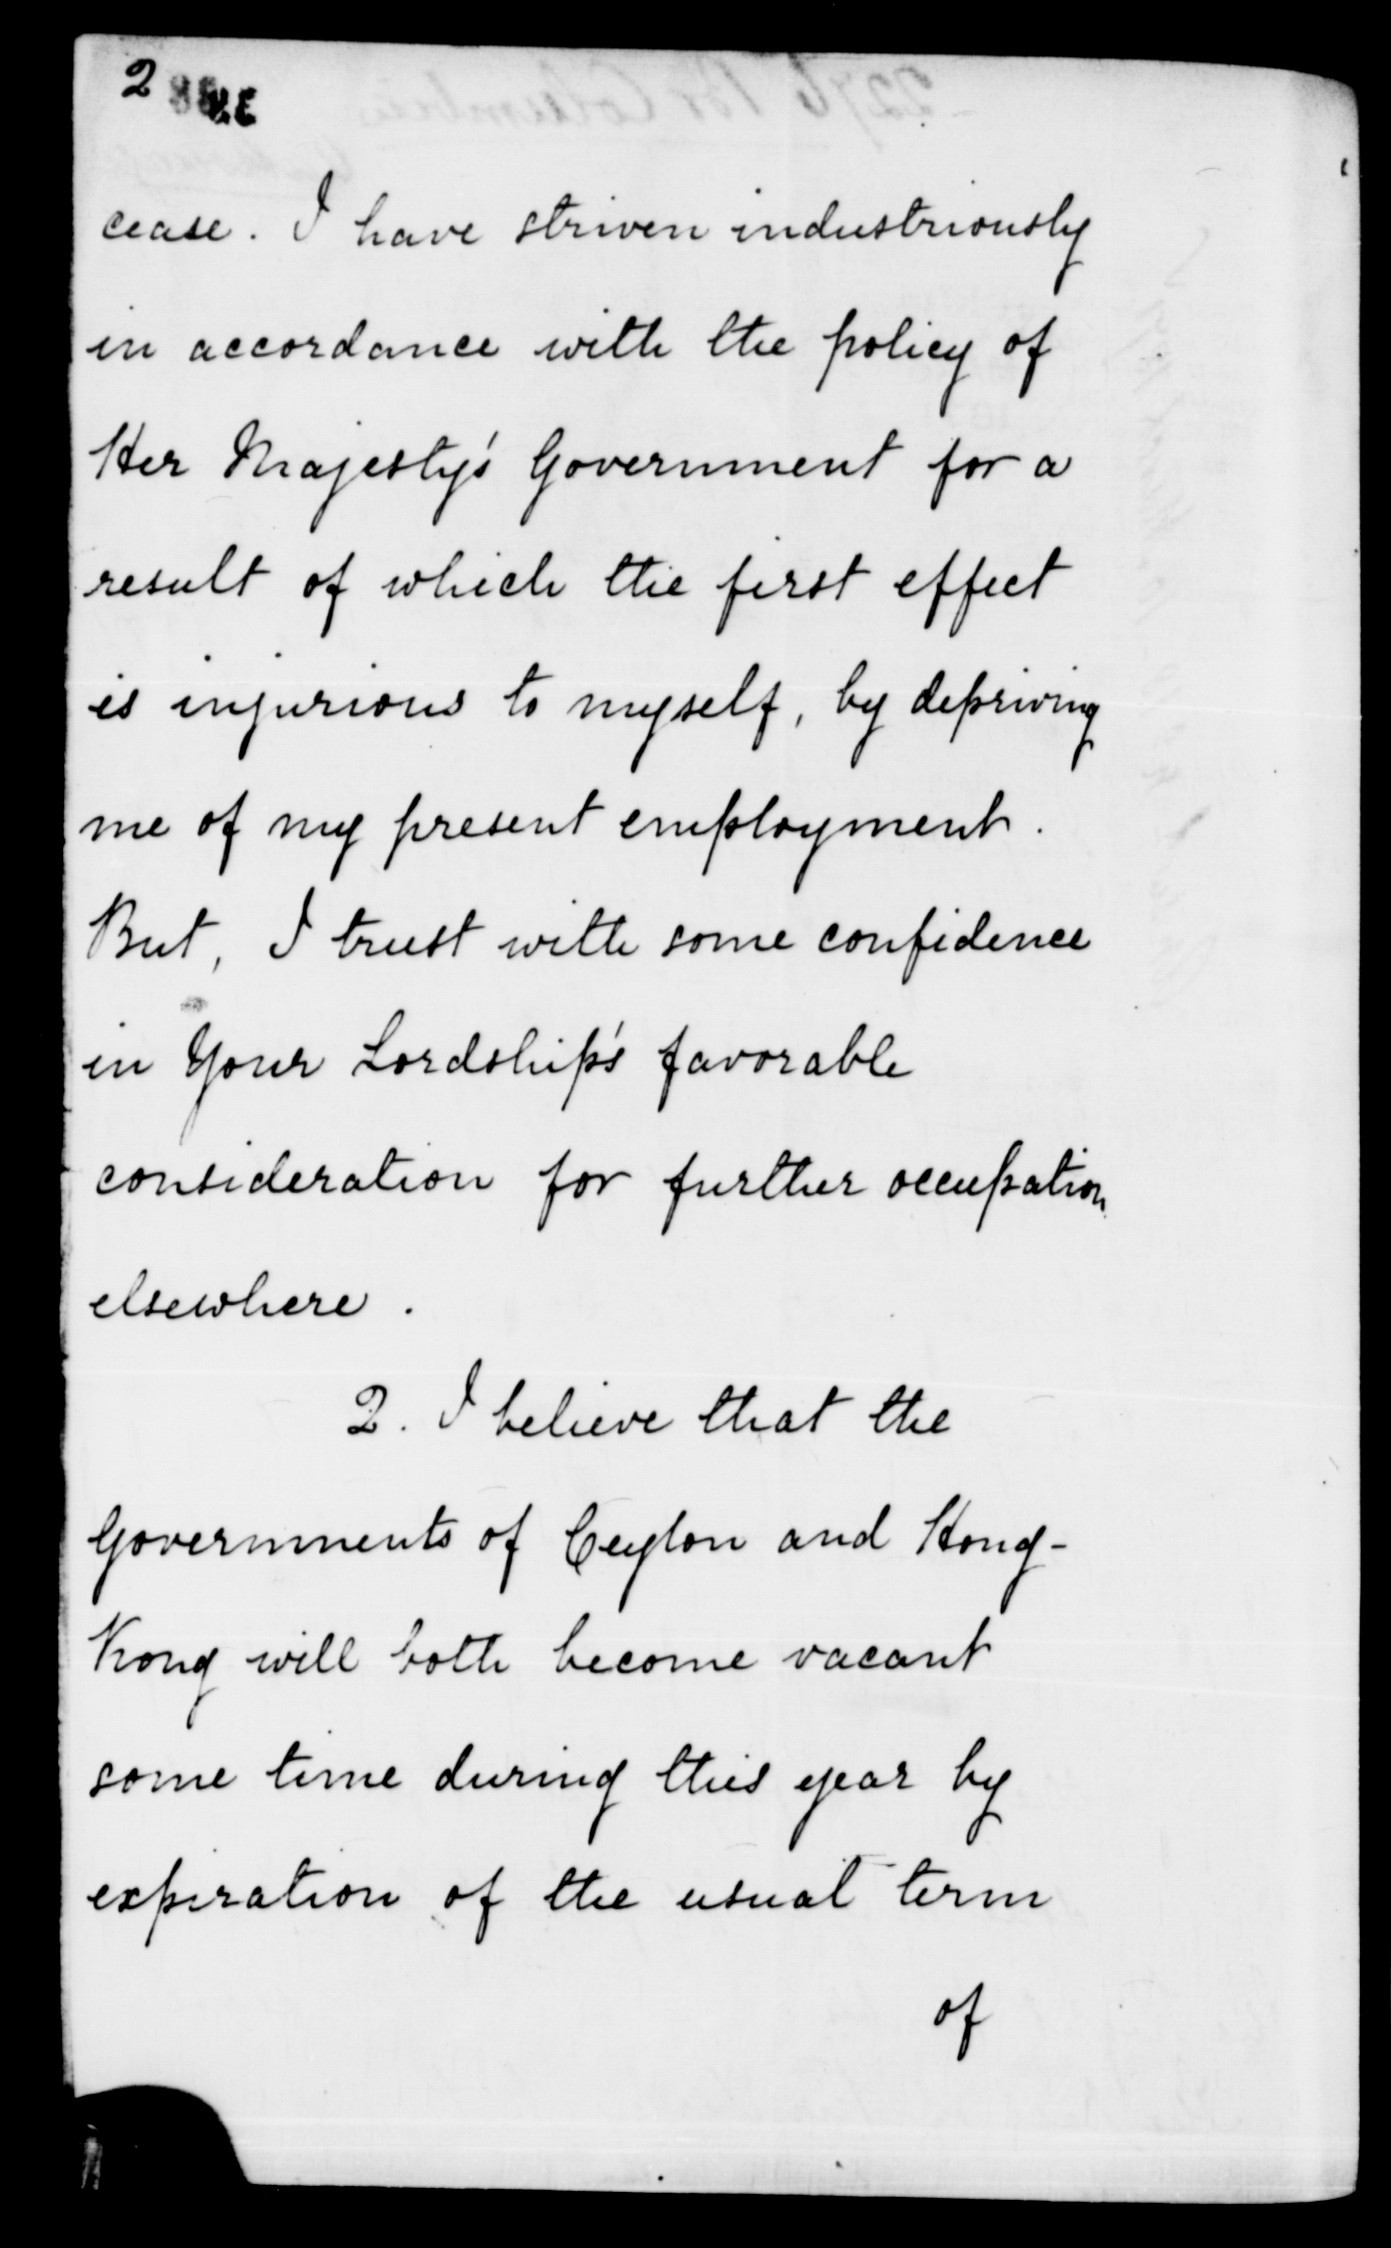 2
cease. I have striven industriously
in accordance with the policy of
Her Majesty's Government for a
result of which the first effect
is injurious to myself, by depriving
me of my present employment.
But, I trust with some confidence
in Your Lordship's favorable
consideration for further occupation
elsewhere.
2. I believe that the
Governments of Ceylon and Hong-
Kong will both become vacant
some time during this year by
expiration of the usual term
of